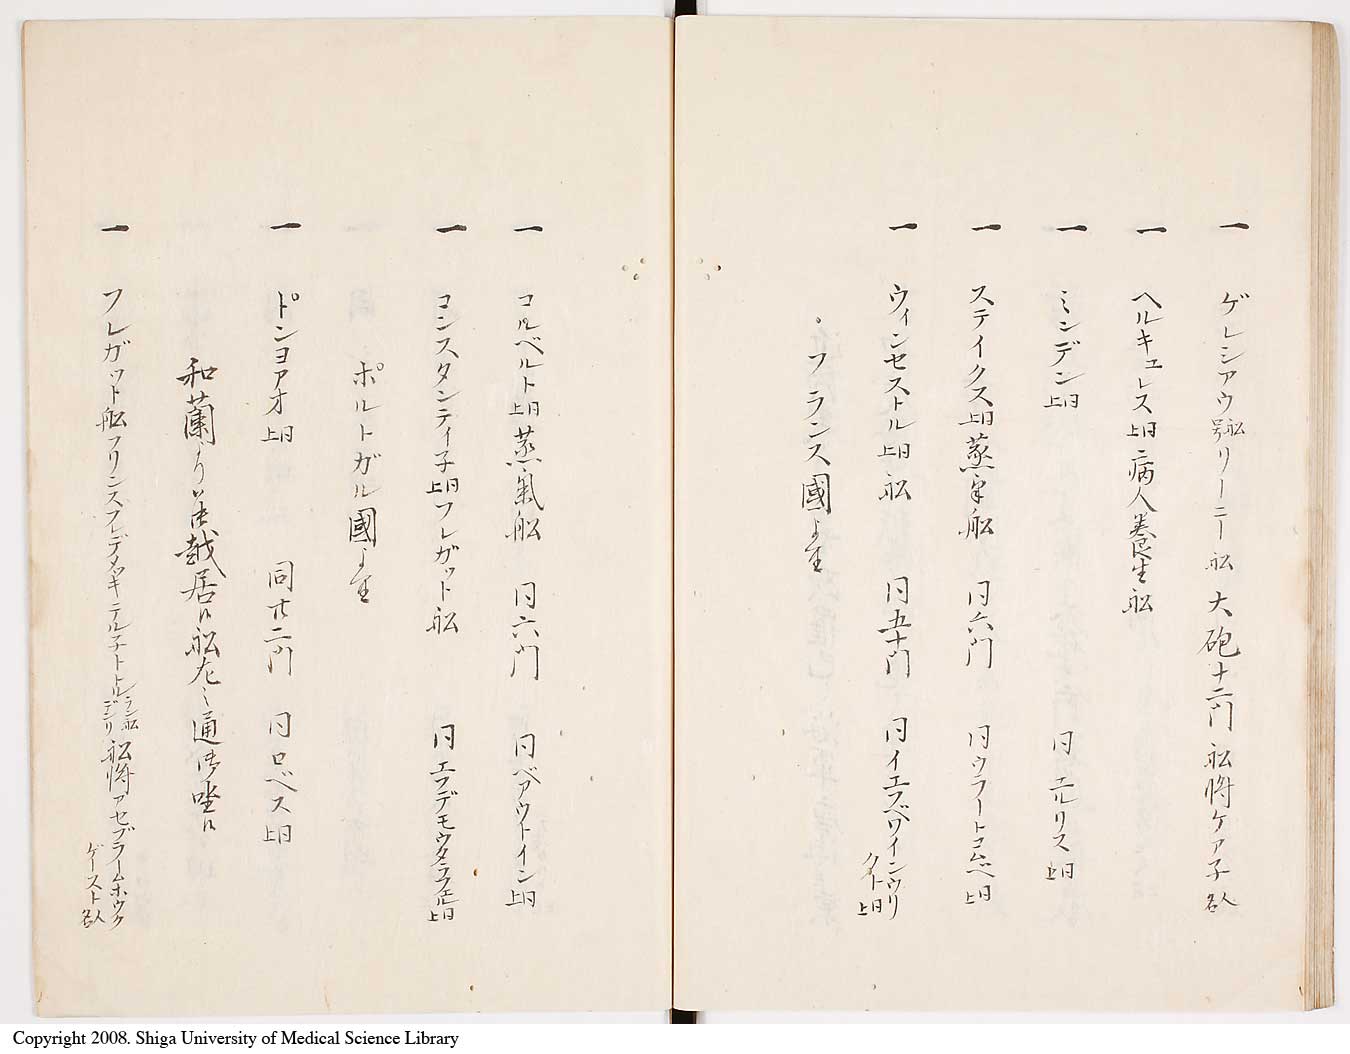 一 ゲレシアウ舩号リーニー舩 大砲十二門 舩将ケア子人名
一 ヘルキュレス同上病人養生舩
一 ミンデン同上 同エルリス同上
一 ステイクス同上蒸氣舩 同六門 同ウラートコムベ同上
一 ウィンセストル同上舩 同五十門 同イエフベワインウリクト同上
フランス國より
一 コルベルト同上蒸氣舩 同六門 同ベアウトイン同上
一 コンスタンティ子同上フレガット舩 同エフデモウタラフエル同上
ポルトガル國より
一 ドンヨアオ同上 同廿二門 同ロベス同上
和蘭より差越居候舩左之通御座候
一 フレガット舩フリンスフレデリッキデル子ートルランデン舩号舩将アセブラームホウクゲースト人名
Copyright 2008. Shiga University of Medical Science Library